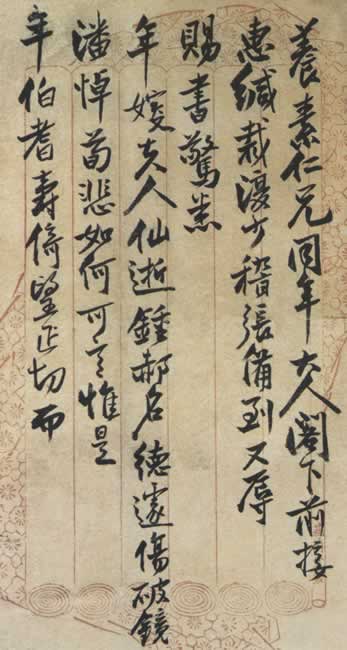 養素仁兄同年大人閣下前接
惠緘裁復少稽張備到又辱
賜書驚悉
年嫂夫人仙逝鍾郝名德遽傷破鏡
潘悼荀悲如何可言惟是
年伯耆壽倚望正切而